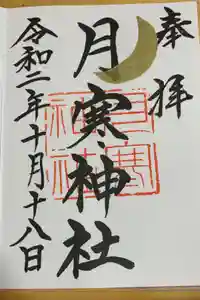 奉拝
月寒神社
令和二年十月十八日
月寒
神社